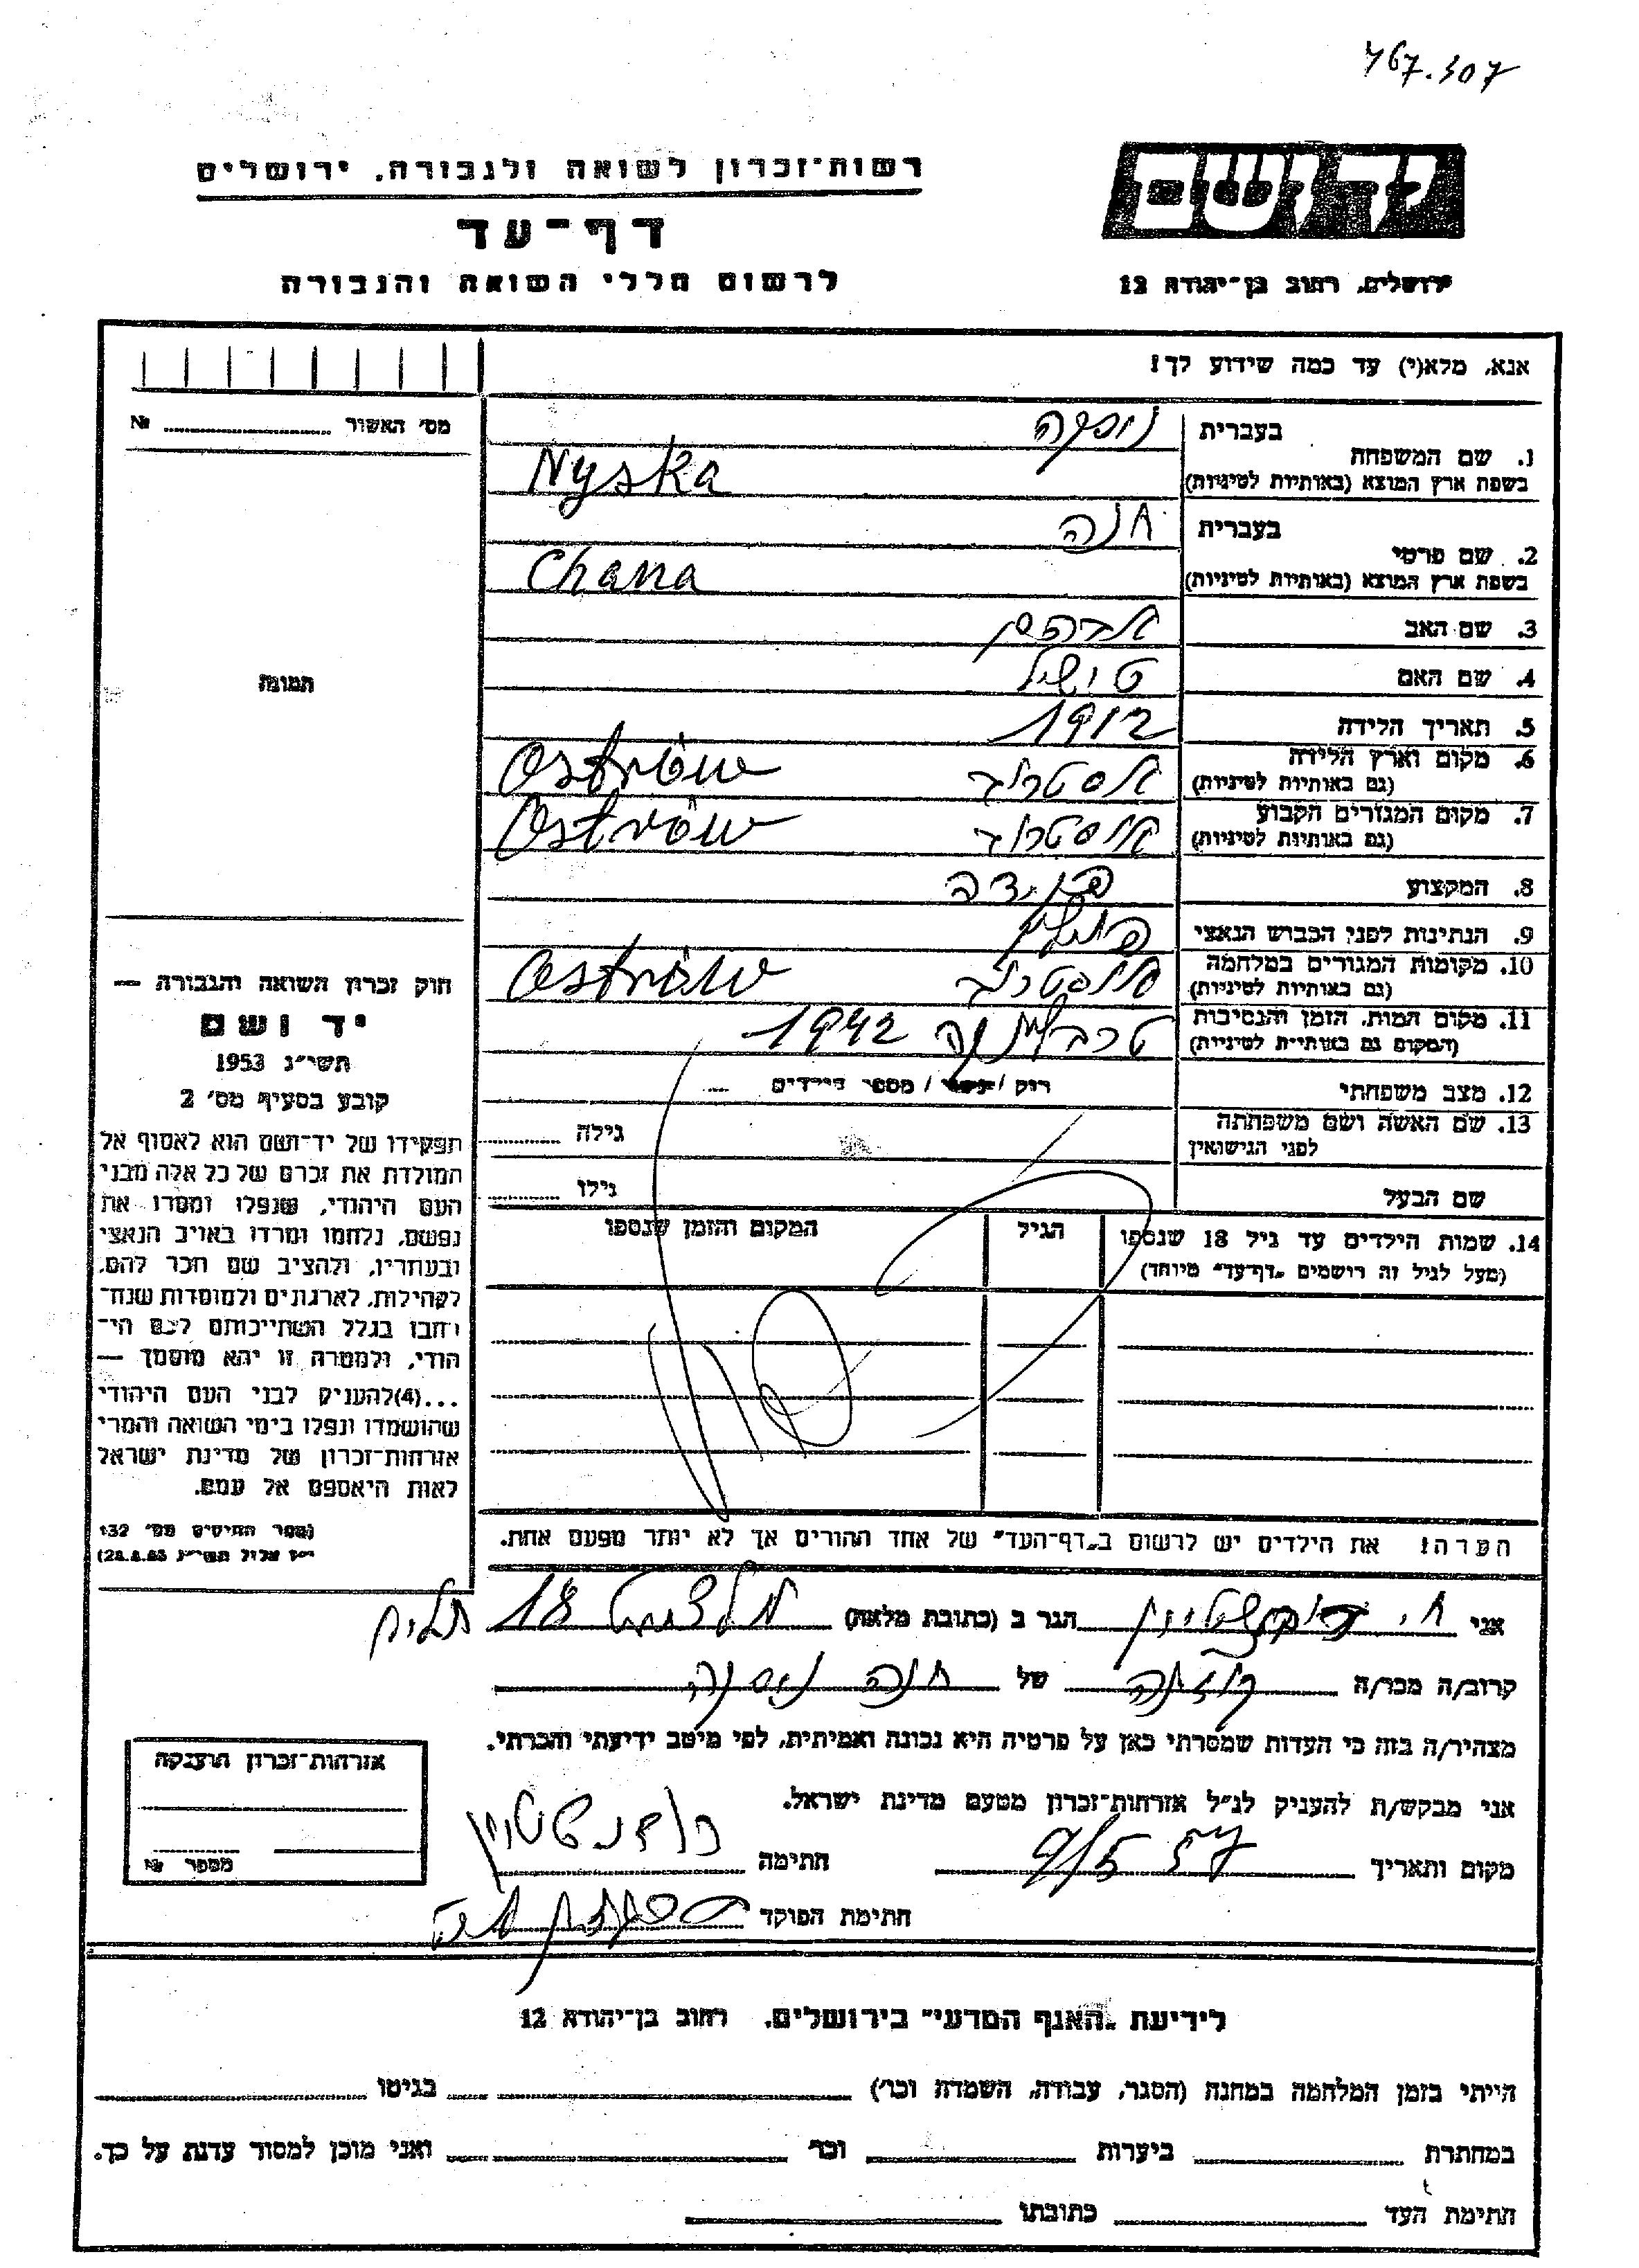 767.307
רשות־זכרון לשואה ולגבורה, ירושלים
יד ושם
דף־עד
לרשום חללי השואה והגבורה
ירושלים, רחוב בן־יהודה 12
אנא, מלא(י) עד כמה שידוע לך!
מס׳ האשור № 
בעברית ניסקה
1. שם המשפחה
בשפת ארץ המוצא (באותיות לטיניות) Nyska
בעברית חנה
2. שם פרטי
בשפת ארץ המוצא (באותיות לטיניות) Chana
3. שם האב אברהם
4. שם האם
תמונה
5. תאריך הלידה 1912
6. מקום וארץ הלידה אוסטרוב Ostrów
(גם באותיות לטיניות)
7. מקום המגורים הקבוע אוסטרוב Ostrów
(גם באותיות לטיניות)
8. המקצוע
9. הנתינות לפני הכבוש הנאצי פולין
10. מקומות המגורים במלחמה אוסטרוב Ostrów
(גם באותיות לטיניות)
11. מקום המות, הזמן והנסיבות טרבלינקה 1942
(המקום גם באותיות לטיניות)
12. מצב משפחתי רוק / נשוי / מספר הילדים
13. שם האשה ושם משפחתה גילה
לפני הנישואין
שם הבעל גילו
14. שמות הילדים עד גיל 18 שנספו הגיל המקום והזמן שנספו
(מעל לגיל זה רושמים „דף־עד״ מיוחד)
חוק זכרון השואה והגבורה —
יד ושם
תשי״ג 1953
קובע בסעיף מס׳ 2
תפקידו של יד־ושם הוא לאסוף אל
המולדת את זכרם של כל אלה מבני
העם היהודי, שנפלו ומסרו את
נפשם, נלחמו ומרדו באויב הנאצי
ובעוזריו, ולהציב שם וזכר להם,
לקהילות, לארגונים ולמוסדות שנח־
רבו בגלל השתייכותם לעם הי־
הודי, ולמטרה זו יהא מוסמך —
...(4)להעניק לבני העם היהודי
שהושמדו ונפלו בימי השואה והמרי
אזרחות־זכרון של מדינת ישראל
לאות היאספם אל עמם.
(ספר החוקים מס׳ 132
י״ז אלול תשי״ג 28.8.53)
הערה! את הילדים יש לרשום ב„דף־העד״ של אחד ההורים אך לא יותר מפעם אחת.
אני הגר ב (כתובת מלאה) 18
קרוב/ה מכר/ה של חנה ניסקה
מצהיר/ה בזה כי העדות שמסרתי כאן על פרטיה היא נכונה ואמיתית, לפי מיטב ידיעתי והכרתי.
אני מבקש/ת להעניק לנ״ל אזרחות־זכרון מטעם מדינת ישראל.
מקום ותאריך 9/5 57 חתימה
חתימת הפוקד
אזרחות־זכרון הוענקה
מספר №
לידיעת „האגף המדעי״ בירושלים, רחוב בן־יהודה 12
הייתי בזמן המלחמה במחנה (הסגר, עבודה, השמדה וכו׳) בגיטו
במחתרת ביערות וכו׳ ואני מוכן למסור עדות על כך.
חתימת העד כתובתו